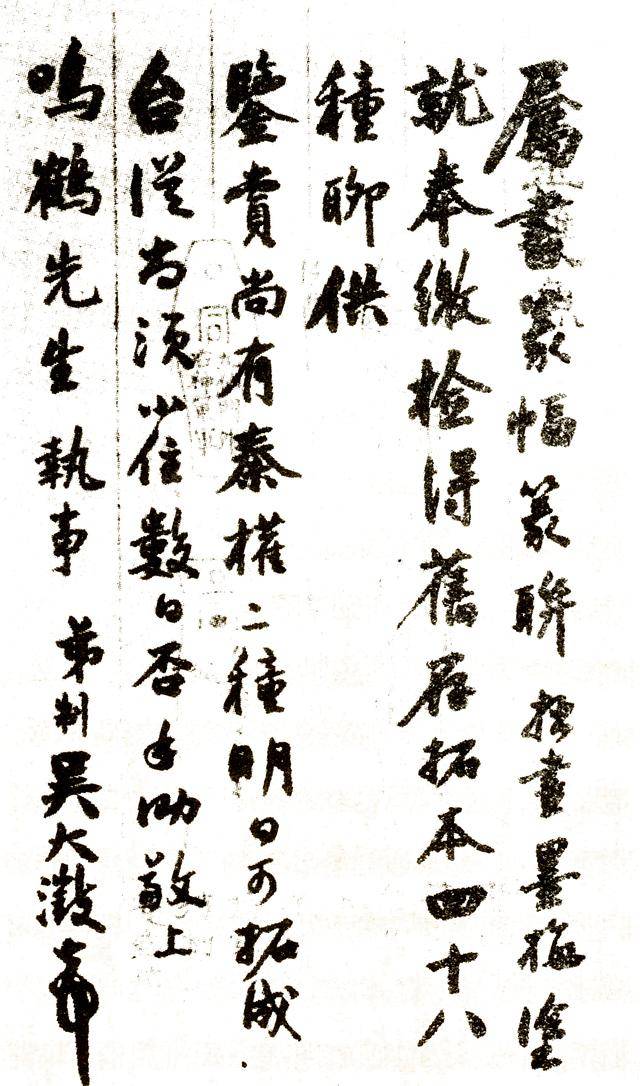 屬書篆幅篆聯拙畫墨梅塗
就奉繳檢得舊存拓本四十八
種聊供
鑒賞尚有秦權二種明日可拓成
台從尚須小住數日否手泐敬上
鳴鶴先生執事 弟制吳大澂